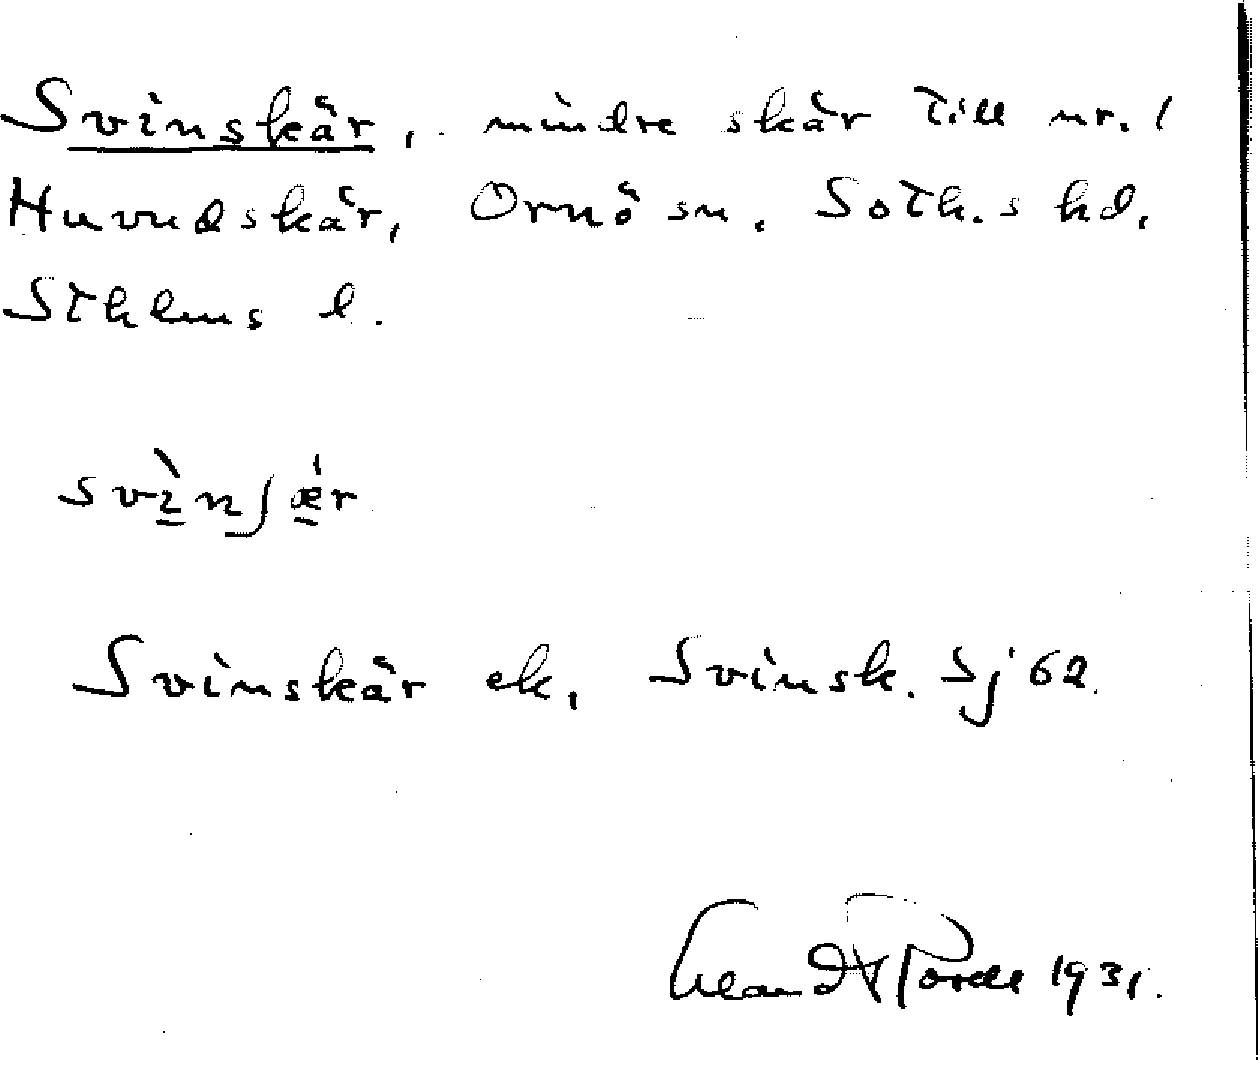 Svinskär, mindre skär till nr. 1
Huvudskär, Ornö sn. Soth.s hd.
Sthlms l.
svìnʃǽr
Svinskär ek, Svinsk. Sj 62.
1931.